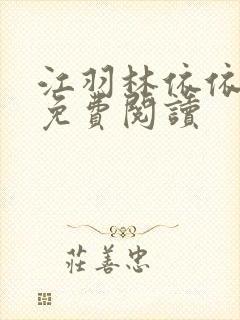 江羽林依依
免費閱讀
莊善忠